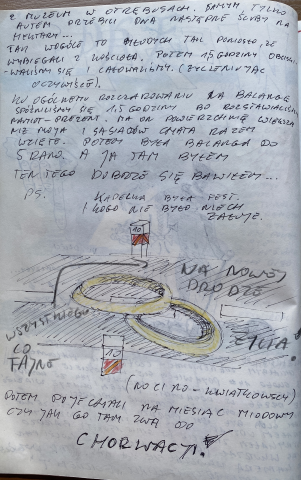 Z MUZEUM W OTRĘBUSACH. SAMYM TYLKO
AUTEM DRZEBICI DNA NASTĘPNE ŚLUBY NA
MENTARM...
TAK WOGÓLE TO MŁODYCH TAK POMOSTO, ŻE
WYBIEGALI Z KOŚCIOŁA. POTEM 1,5 GODZINY OBCINO-
WALIŚMY SIĘ I CAŁOWALIŚMY. (ŻYCZENIUJĄC
OCZYWIŚCIE).
KU OGÓLNEMU ROZCZAROWANIU NA BALANGĘ
SPÓŹNILIŚMY SIĘ 1,5 GODZINY BO ROZSTAWIALIŚMY
NAMIOT-PREZENT. MA ON POWIERZCHNIĘ WIĘKSZĄ
NIŻ MOJA I SĄSIADÓW CHATA RAZEM
WZIĘTE. POTEM BYŁA BALANGA DO
5 RANO. A JA TAM BYŁEM
TEN TEGO DOBRZE SIĘ BAWIŁEM...
PS. KAPELKA BYŁA FEST.
I KOGO NIE BYŁO NIECH
ŻAŁUJE.
10
NA NOWEJ
DRODZE
WSZYSTKIEGO
CO
FAJNE
ŻYCIA
10
(NO CI NO-KWIATKOWSCY)
POTEM POJECHALI NA MIESIĄC MIODOWY
CZY JAK GO TAM ZWĄ DO
CHORWACJI.